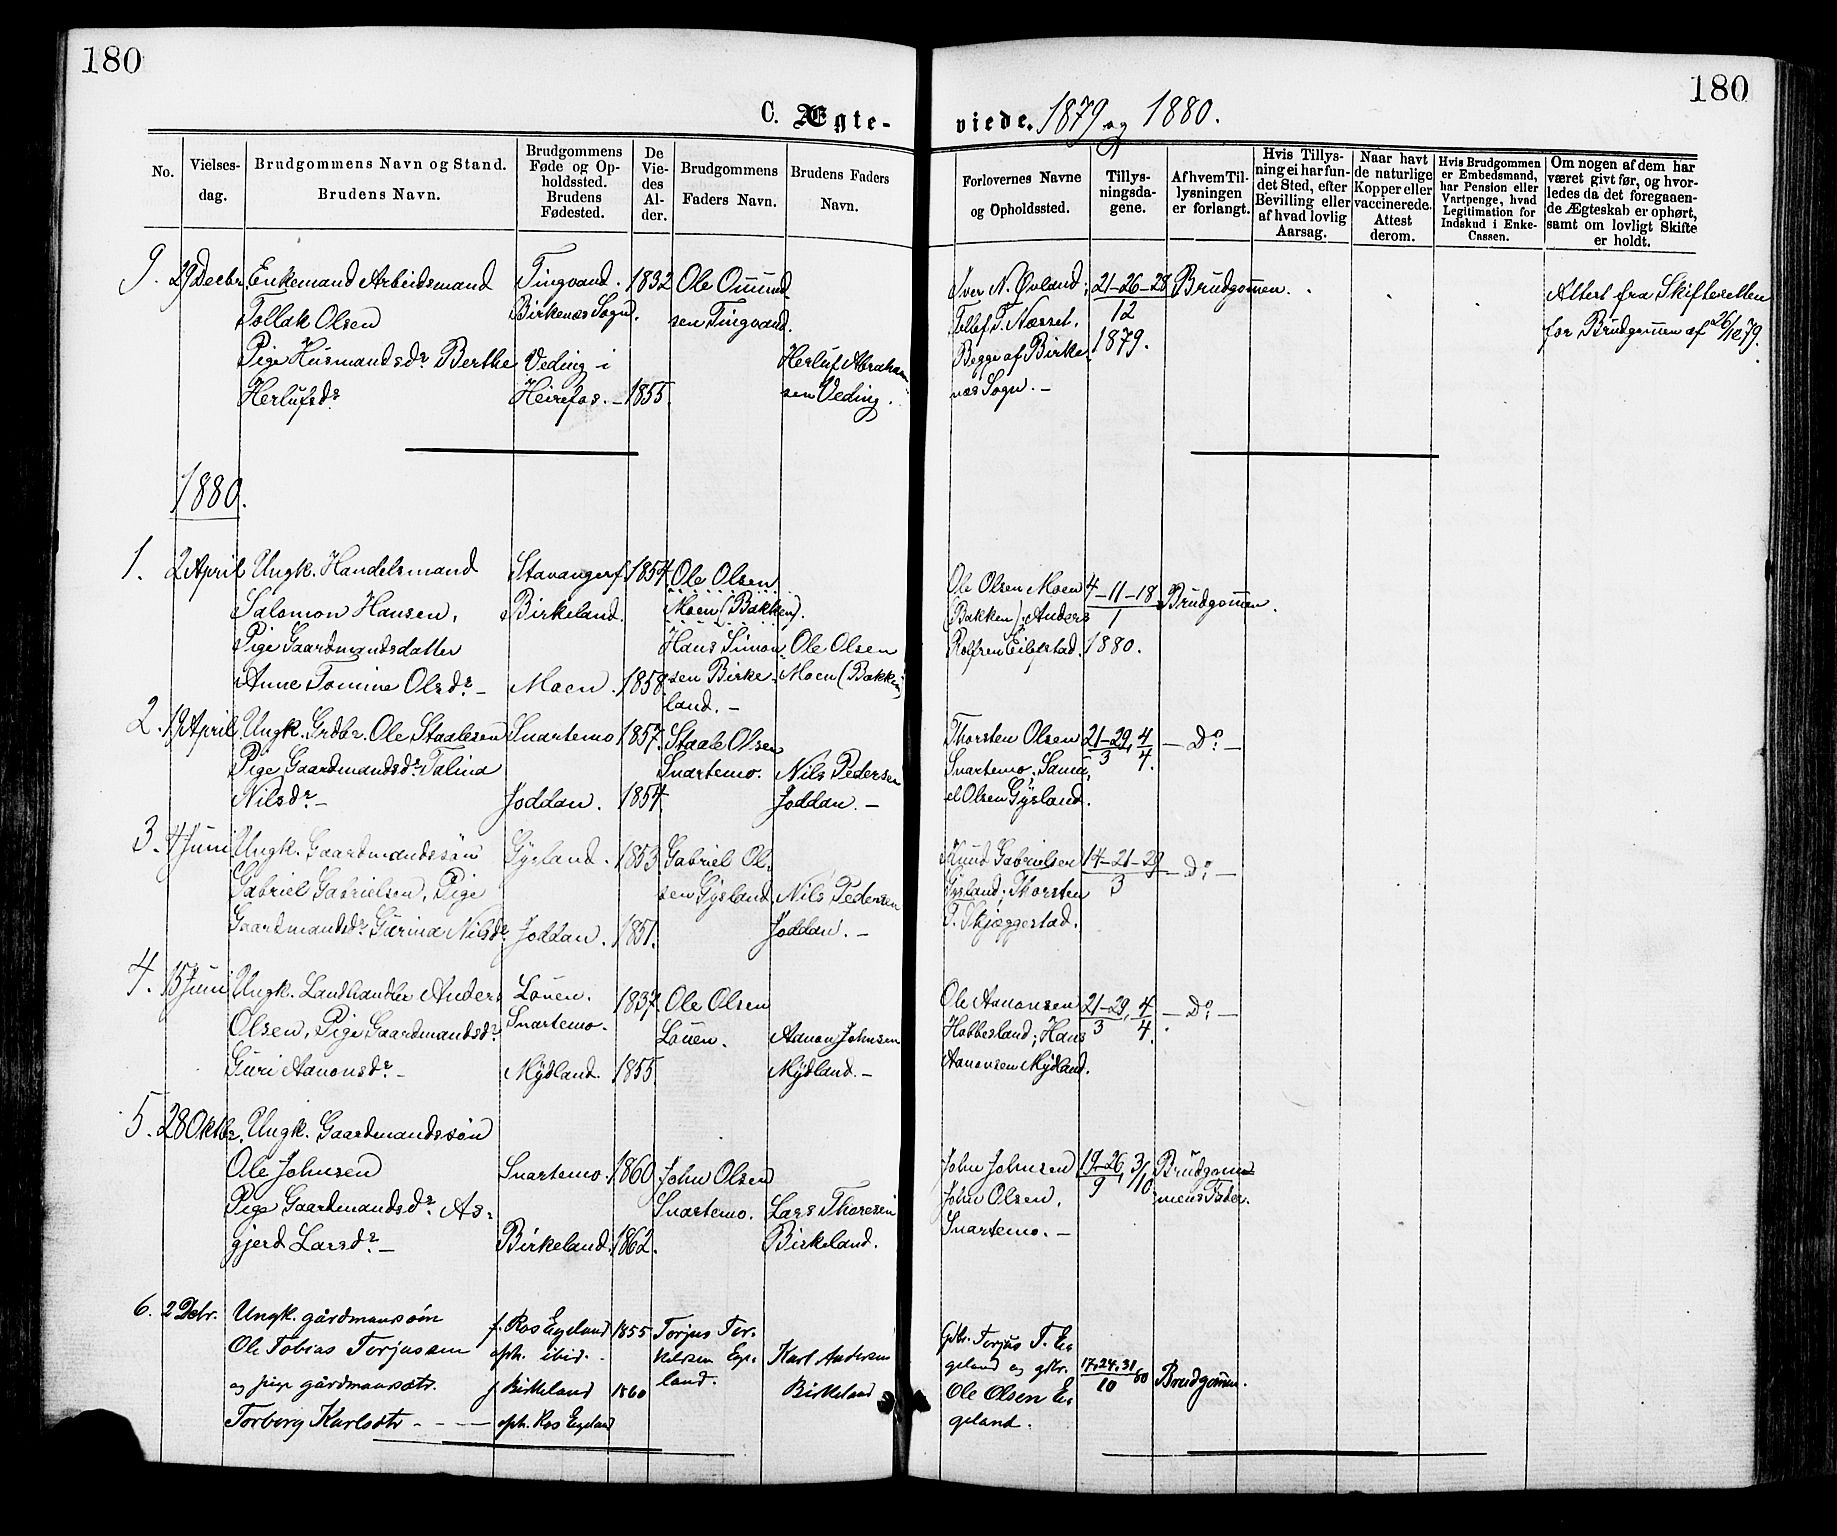 180
180
C. Ægte-
viede. 1879 og 1880.
No.
Vielses-
dag.
Brudgommens Navn og Stand.
Brudens Navn.
Brudgommens
Føde og Op-
holdssted.
Brudens
Fødested.
De
Vie-
des
Al-
der.
Brudgommens
Faders Navn.
Brudens Faders
Navn.
Forlovernes Navne
og Opholdssted.
Tillys-
ningsda-
gene.
Af hvem Til-
lysningen
er forlangt.
Hvis Tillys-
ning ei har fun-
det Sted, efter
Bevilling eller
af hvad lovlig
Aarsag.
Naar havt
de naturlige
Kopper eller
vaccinerede.
Attest
derom.
Hvis Brudgommen
er Embedsmand,
har Pension eller
Vartpenge, hvad
Legitimation for
Indskud i Enke-
Cassen.
Om nogen af dem har
været givt før, og hvor-
ledes da det foregaaen-
de Ægteskab er ophørt,
samt om lovligt Skifte
er holdt.
9. 29 Decbr
Enkemand Arbeidsmand
Tollak Olsen
Pige Husmandsdr. Berthe
Herlufsdr.
Tingvand.
Birkenæs Sogn.
Veding i
Heirefos. –
1832
1855.
Ole Omund
sen Tingvand.
Herluf Abraham
sen Veding.
Iver N. Øvland;
Tellef T. Næsset.
Begge af Birke
næs Sogn. –
21–26–28
12
1879.
Brudgommen.
Attest fra Skifteretten
for Brudgommen af 26/12 79.
1880.
1. 2 April
Ungk. Handelsmand
Salomon Hansen,
Pige Gaardmandsdatter
Anne Tomine Olsdr. –
Stavanger f.
Birkeland.
Moen.
1854.
1858.
Ole Olsen
Moen (Bakken).
Hans Simon
sen Birke-
land. –
Ole Olsen
Moen (Bakken)
Ole Olsen Moen
(Bakken); Anders
Rolfsen Eilefstad.
4–11–18
1
1880.
Brudgommen.
2. 19 April
Ungk. Grdbr. Ole Staalesen
Pige Gaardmandsdr. Talina
Nilsdr. –
Snartemo
Joddan.
1857.
1854
Staale Olsen
Snartemo.
Nils Pedersen
Joddan. –
Thorsten Olsen
Snartemo; Samu,
el Olsen Gysland.
21–29, 4
3 4.
– Do. –
3. 4 Juni
Ungk. Gaardmandssøn
Gabriel Gabrielsen, Pige
Gaardmandsdr. Gurina Nilsdr.
Gysland.
Joddan.
1853
1851.
Gabriel Ol-
sen Gysland.
Nils Pedersen
Joddan. –
Knud Gabrielsen
Gysland; Thorsten
O. Skjæggestad.
14–21–29
3
– Do. –
4. 15 Juni
Ungk. Landhandler Anders
Olsen, Pige Gaardmandsdr.
Guri Aanonsdr. –
Louen.
Snartemo.
Mydland.
1837.
1855.
Ole Olsen
Louen.
Aanon Johnsen
Mydland. –
Ole Aanonsen
Hobbesland; Hans
Aanonsen Mydland.
21–29, 4
3 4.
– Do. –
5. 28 Oktbr.
Ungk. Gaardmandssøn
Ole Johnsen
Pige Gaardmandsdr. As-
gjerd Larsdr. –
Snartemo.
Birkeland.
1860
1862.
John Olsen
Snartemo.
Lars Thoresen
Birkeland.
John Johnsen
John Olsen,
Snartemo. –
19–26, 3/10.
9
Brudgom-
mens Fader.
6. 2 Debr.
Ungk. gårdmanssøn
Ole Tobias Torjussen
og pige gårdmansdtr.
Torborg Karlsdtr – – –
f. Ros Egeland
oph. ibid.
f Birkeland
oph. Ros Egeland
1855
1860
Torjus Tor-
kelsen Ege-
land.
Karl Andersen
Birkeland
Gdbr. Torjus T. Eg
geland og gbr.
Ole Olsen Eg
geland.
17,24,31 80
10
Brudgommen.